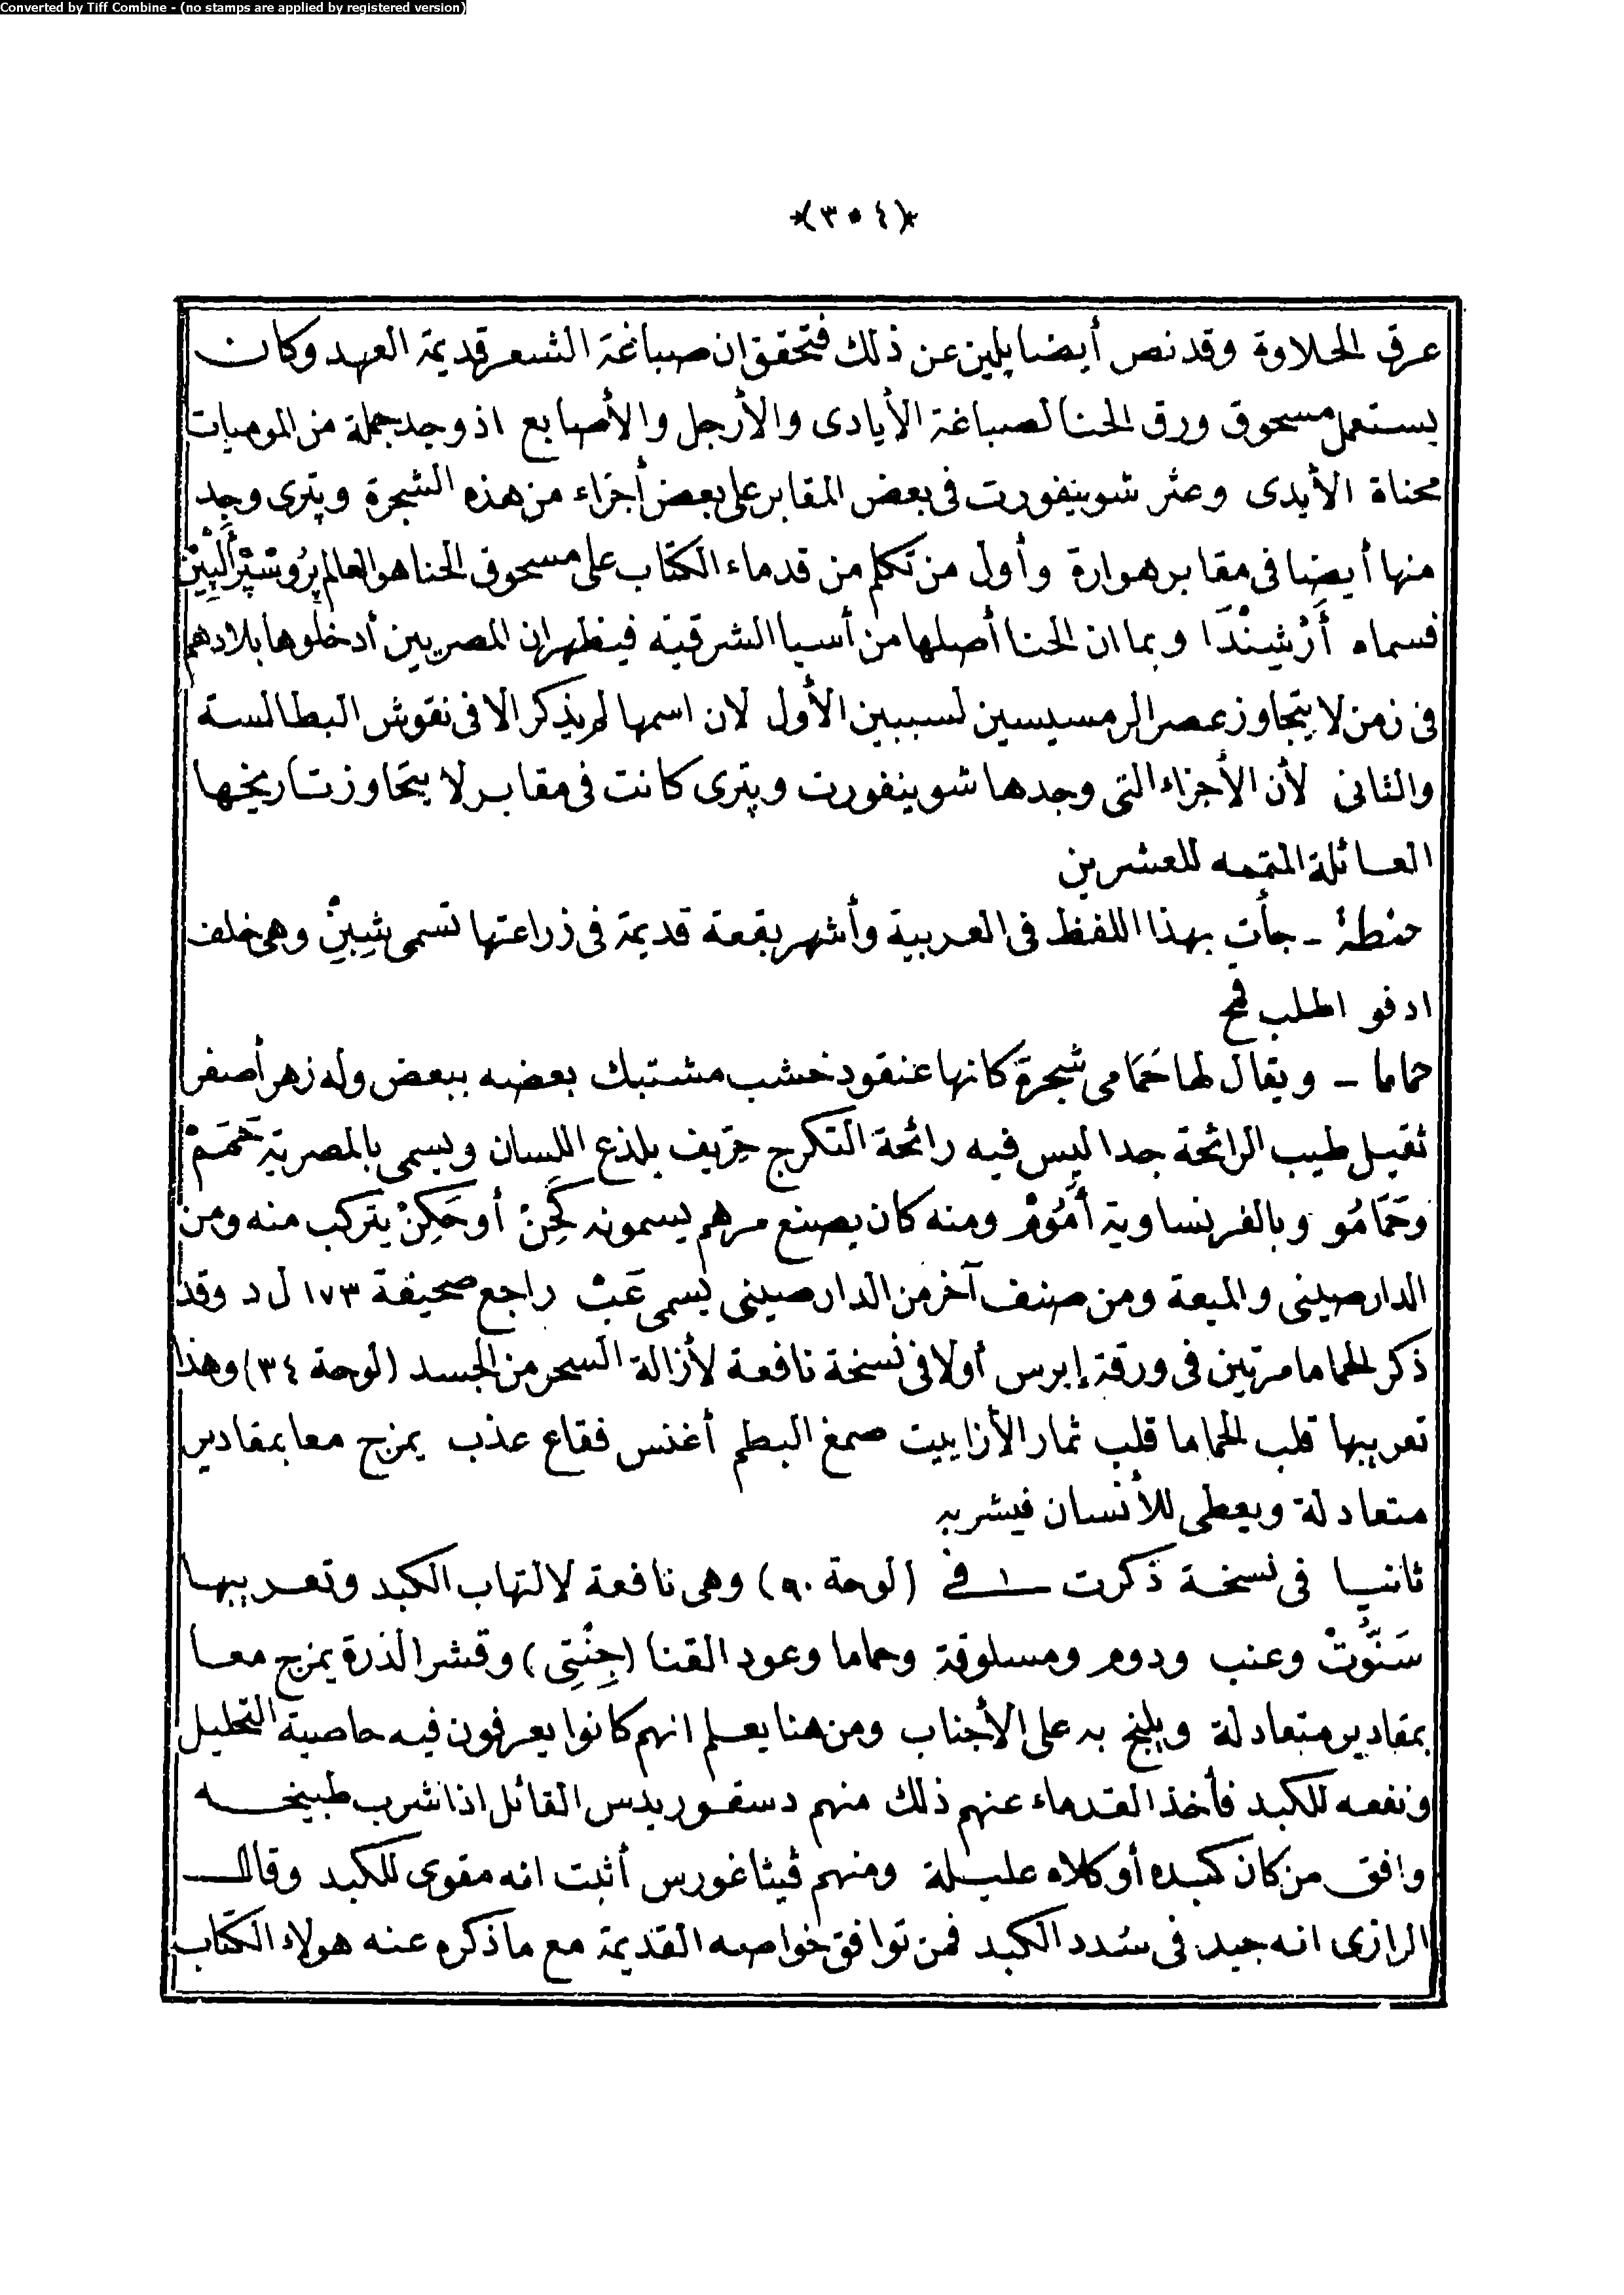 Converted by Tiff Combine - (no stamps are applied by registered version)
*(٣٠٤)*
عرق الحلاوة وقد نص أيضا پلين عن ذلك فتحقق ان صباغة الشعر قديمة العهد وكان
يستعمل مسحوق ورق الحنا لصباغة الأيادى والأرجل والأصابع اذ وجد جملة من الموميات
محناة الأيدى وعثر شوينفورت فى بعض المقابر على بعض أجزاء من هذه الشجرة وپترى وجد
منها أيضا فى مقابر هوارة وأول من تكلم من قدماء الكتّاب على مسحوق الحنا هو العالم
فسماه أَرْشِينْدَا وبما ان الحنا أصلها من أسيا الشرقية فيظهر ان المصريين أدخلوها بلادهم
فى زمن لا يتجاوز عصر الرمسيسين لسببين الأول لان اسمها لم يذكر الا فى نقوش البطالسة
والثانى لأن الأجزاء التى وجدها شوينفورت وپترى كانت فى مقابر لا يتجاوز تاريخها
العائلة المتممه للعشرين
حنطة - جأت بهذا اللفظ فى العربية وأشهر بقعة قديمة فى زراعتها تسمى شِبِينْ وهى خلف
ادفو اطلب قمح
حماما - ويقال لها حَمَامى شجرة كانها عنقود خشب مشتبك بعضه ببعض وله زهر أصفر
ثقيل طيب الرائحة جدا ليس فيه رائحة التكرج حِرّيف يلذع اللسان ويسمى بالمصرية حَمَمْ
وحَمَامُو وبالفرنساوية أَمُوُمْ ومنه كان يصنع مرهم يسمونه حَكِنْ أو حَكِنْ يتركب منه ومن
الدارصينى والميعة ومن صنف آخر من الدارصينى يسمى عَبْ راجع صحيفة ١٧٣ ل د وقد
ذكر الحماما مرتين فى ورقة إبرس أولا فى نسخة نافعة لأزالة السحر من الجسد (لوحة ٣٤) وهذا
تعريبها قلب الحماما قلب ثمار الأزاييت صمغ البطم أغنس فقاع عذب يمزج معا بمقادير
متعادلة ويعطى للأنسان فيشربه
ثانيا فى نسخة ذكرت فى (لوحة ٩٠) وهى نافعة لالتهاب الكبد وتعريبها
سَنَّوُتْ وعنب ودوم ومسلوقة وحماما وعود القنا (جِنْتِى) وقشر الذرة يمزج معا
بمقادير متعادلة ويلبخ به على الأجناب ومن هنا يعلم انهم كانوا يعرفون فيه حاصية التحليل
ونفعه للكبد فأخذ القدماء عنهم ذلك منهم دسقوريدس القائل اذا شرب طبيخه
وافق من كان كبده أو كلاه عليلة ومنهم ڤيثاغورس أثبت انه مقوى للكبد وقال
الرازى انه جيد فى سدد الكبد فمن توافق خواصه القديمة مع ما ذكره عنه هولاء الكتّاب